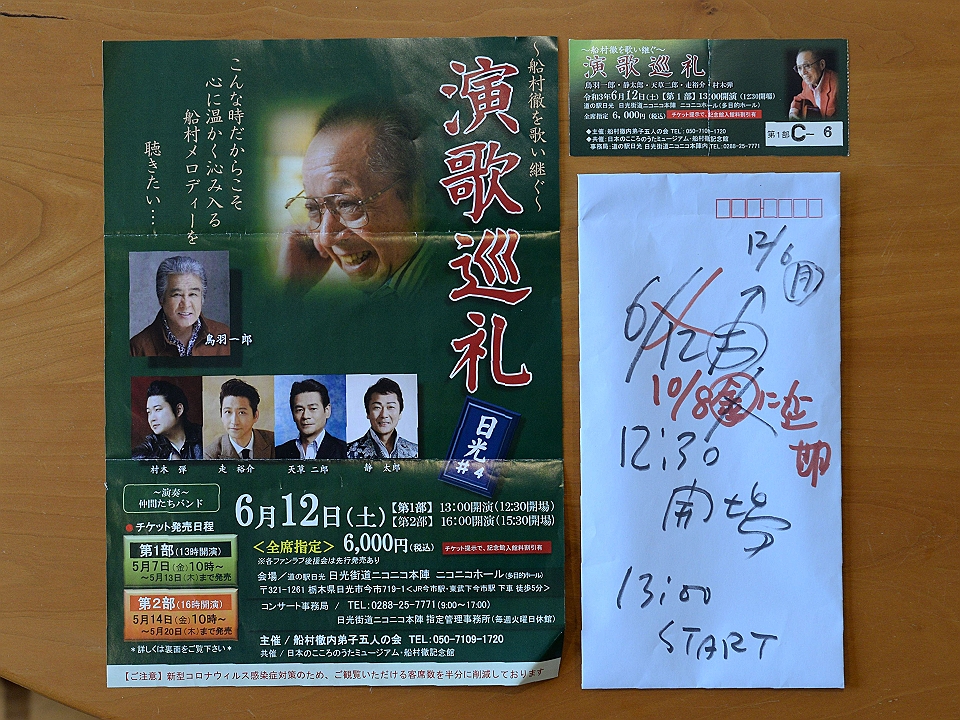 ～船村徹を歌い継ぐ～
演歌巡礼
こんな時だからこそ
心に温かく沁み入る
船村メロディーを
聴きたい…
鳥羽一郎
村木 弾
走 裕介
天草 二郎
静 太郎
日光
#4
～演奏～
仲間たちバンド
6月12日(土)
【第1部】13:00開演(12:30開場)
【第2部】16:00開演(15:30開場)
●チケット発売日程
第1部(13時開演)
5月7日(金)10時～
～5月13日(木)まで発売
第2部(16時開演)
5月14日(金)10時～
～5月20日(木)まで発売
*詳しくは裏面をご覧下さい*
<全席指定> 6,000円(税込)
チケット提示で、記念館入館料割引有
※各ファンクラブ後援会は先行発売あり
会場/道の駅日光 日光街道ニコニコ本陣 ニコニコホール(多目的ホール)
〒321-1261 栃木県日光市今市719-1<JR今市駅・東武下今市駅 下車 徒歩5分>
コンサート事務局 / TEL:0288-25-7771(9:00～17:00)
日光街道ニコニコ本陣 指定管理事務所(毎週火曜日休館)
主催/船村徹内弟子五人の会 TEL:050-7109-1720
共催/日本のこころのうたミュージアム・船村徹記念館
【ご注意】新型コロナウィルス感染症対策のため、ご観覧いただける客席数を半分に削減しております
～船村徹を歌い継ぐ～
演歌巡礼
鳥羽一郎・静太郎・天草二郎・走裕介・村木弾
令和3年6月12日(土)【第1部】13:00開演(12:30開場)
道の駅日光 日光街道ニコニコ本陣 ニコニコホール(多目的ホール)
全席指定 6,000円(税込)
チケット提示で、記念館入館料割引有
◆主催:船村徹内弟子五人の会 TEL:050-7109-1720
◆共催:日本のこころのうたミュージアム・船村徹記念館
事務局:道の駅日光 日光街道ニコニコ本陣内 TEL.0288-25-7771
第1部 C- 6
12/6(月)
6/12(土)
10/8(金)に延期
12:30
開場
13:00
START